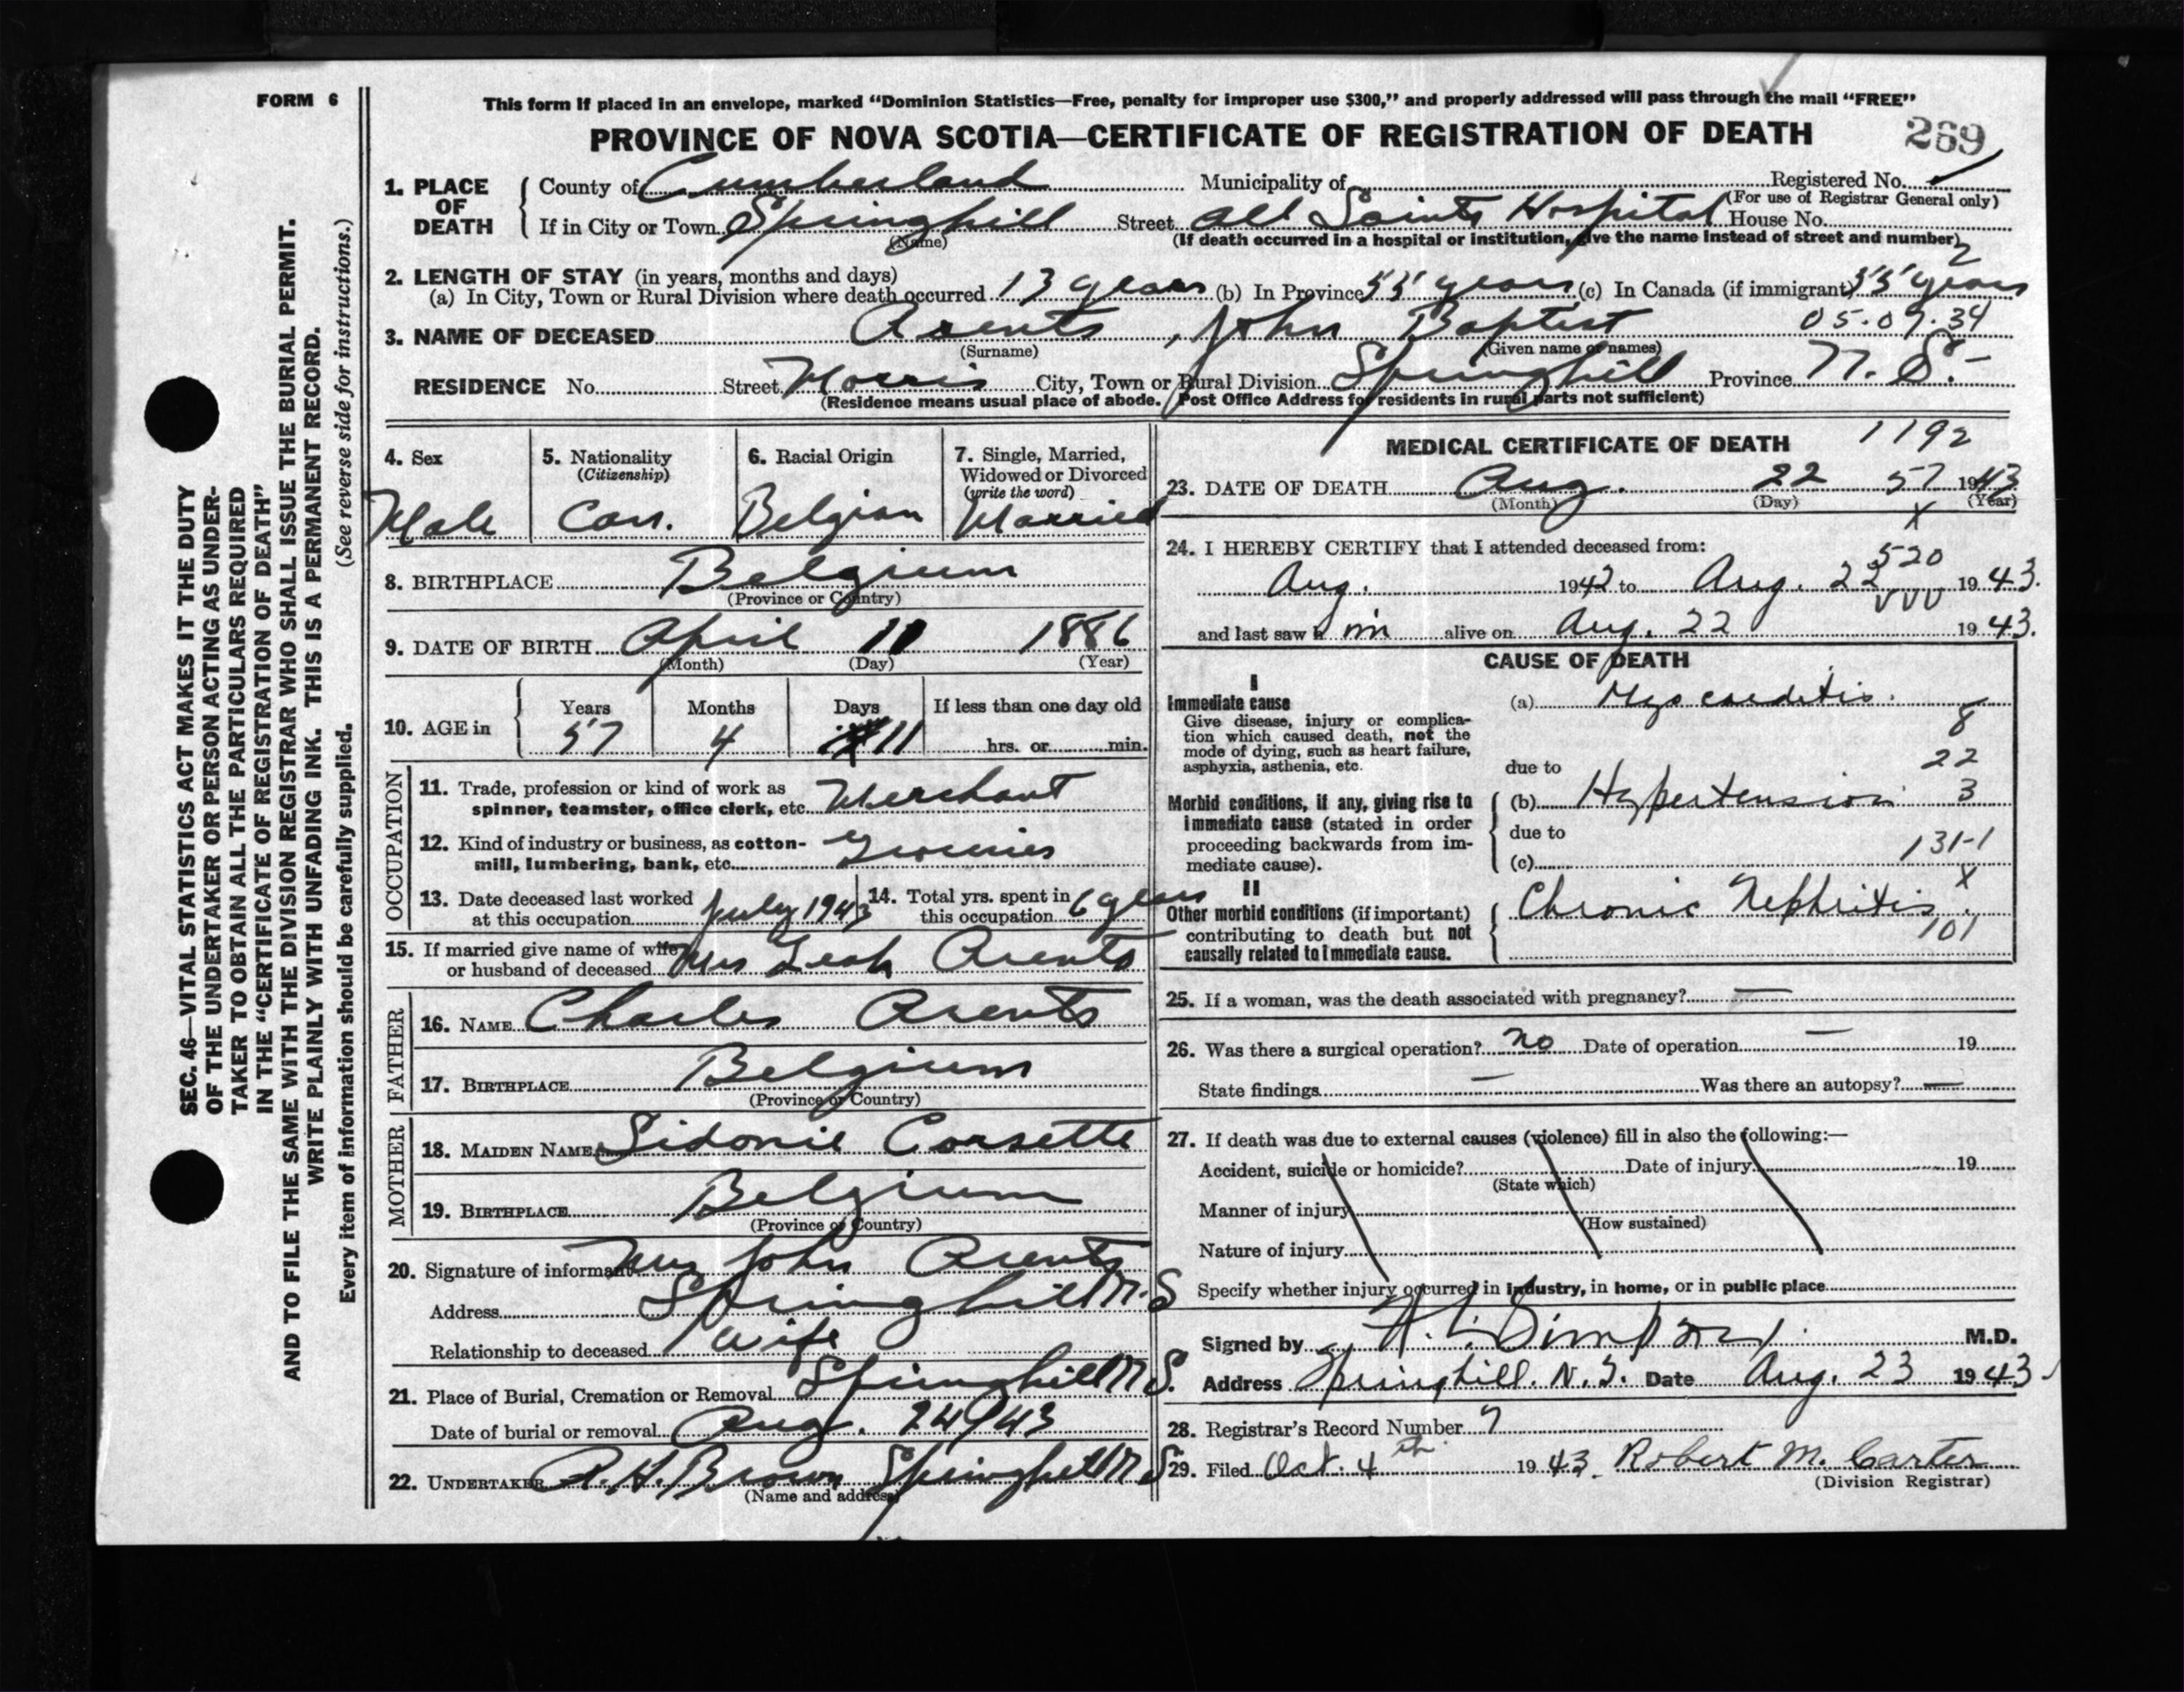 FORM 6
This form if placed in an envelope, marked “Dominion Statistics—Free, penalty for improper use $300,” and properly addressed will pass through the mail “FREE”
PROVINCE OF NOVA SCOTIA—CERTIFICATE OF REGISTRATION OF DEATH
269
1. PLACE OF DEATH { County of Cumberland Municipality of Registered No.
(For use of Registrar General only)
If in City or Town Springhill Street All Saints Hospital House No.
(Name) (If death occurred in a hospital or institution, give the name instead of street and number)
2. LENGTH OF STAY (in years, months and days)
(a) In City, Town or Rural Division where death occurred 13 years (b) In Province 55 years (c) In Canada (if immigrant) 55 years
2
3. NAME OF DECEASED Arents, John Baptist 05.09.34
(Surname) (Given name or names)
RESIDENCE No. Street Morris City, Town or Rural Division Springhill Province N. S.
(Residence means usual place of abode. Post Office Address for residents in rural parts not sufficient)
4. Sex
Male
5. Nationality
(Citizenship)
Can.
6. Racial Origin
Belgian
7. Single, Married, Widowed or Divorced
(write the word)
Married
8. BIRTHPLACE Belgium
(Province or Country)
9. DATE OF BIRTH April 11 1886
(Month) (Day) (Year)
10. AGE in { Years Months Days If less than one day old
57 4 11 hrs. or min.
OCCUPATION
11. Trade, profession or kind of work as
spinner, teamster, office clerk, etc. Merchant
12. Kind of industry or business, as cotton-
mill, lumbering, bank, etc. Groceries
13. Date deceased last worked
at this occupation July 1943
14. Total yrs. spent in
this occupation 6 years
15. If married give name of wife
or husband of deceased Mrs Leah Arents
FATHER
16. NAME Charles Arents
17. BIRTHPLACE Belgium
(Province or Country)
MOTHER
18. MAIDEN NAME Sidonie Corsette
19. BIRTHPLACE Belgium
(Province or Country)
20. Signature of informant Mrs John Arents
Address Springhill N.S
Relationship to deceased Wife
21. Place of Burial, Cremation or Removal Springhill N S.
Date of burial or removal Aug. 24 1943
22. UNDERTAKER Springhill N S
(Name and address)
MEDICAL CERTIFICATE OF DEATH 1192
23. DATE OF DEATH Aug. 22 57 1943
(Month) (Day) (Year)
X
24. I HEREBY CERTIFY that I attended deceased from:
520
Aug. 1942 to Aug. 22 1943.
VVV
and last saw him alive on Aug. 22 1943.
CAUSE OF DEATH
I
Immediate cause (a) Myocarditis.
Give disease, injury or complica-
tion which caused death, not the
mode of dying, such as heart failure,
asphyxia, asthenia, etc.
8
due to
22
Morbid conditions, if any, giving rise to
immediate cause (stated in order
proceeding backwards from im-
mediate cause).
(b) Hypertension 3
due to
131-1
(c)
X
II
Other morbid conditions (if important)
contributing to death but not
causally related to immediate cause.
Chronic Nephritis.
101
25. If a woman, was the death associated with pregnancy? —
26. Was there a surgical operation? no Date of operation — 19
State findings — Was there an autopsy? —
27. If death was due to external causes (violence) fill in also the following:—
Accident, suicide or homicide? Date of injury 19
(State which)
Manner of injury
(How sustained)
Nature of injury
Specify whether injury occurred in industry, in home, or in public place
Signed by Simpson M.D.
Address Springhill. N.S. Date Aug. 23 1943
28. Registrar's Record Number 7
29. Filed Oct. 4th 1943. Robert M. Carter
(Division Registrar)
SEC. 46—VITAL STATISTICS ACT MAKES IT THE DUTY
OF THE UNDERTAKER OR PERSON ACTING AS UNDER-
TAKER TO OBTAIN ALL THE PARTICULARS REQUIRED
IN THE “CERTIFICATE OF REGISTRATION OF DEATH”
AND TO FILE THE SAME WITH THE DIVISION REGISTRAR WHO SHALL ISSUE THE BURIAL PERMIT.
WRITE PLAINLY WITH UNFADING INK. THIS IS A PERMANENT RECORD.
Every item of information should be carefully supplied. (See reverse side for instructions.)